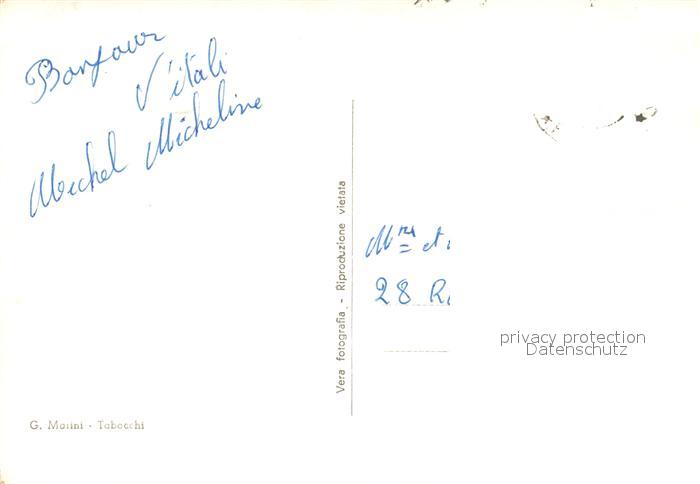 Bonjour
d'Itali
Michel Micheline
Mrs et
28 R
Vera fotografia - Riproduzione vietata
privacy protection
Datenschutz
G. Marini - Tabacchi